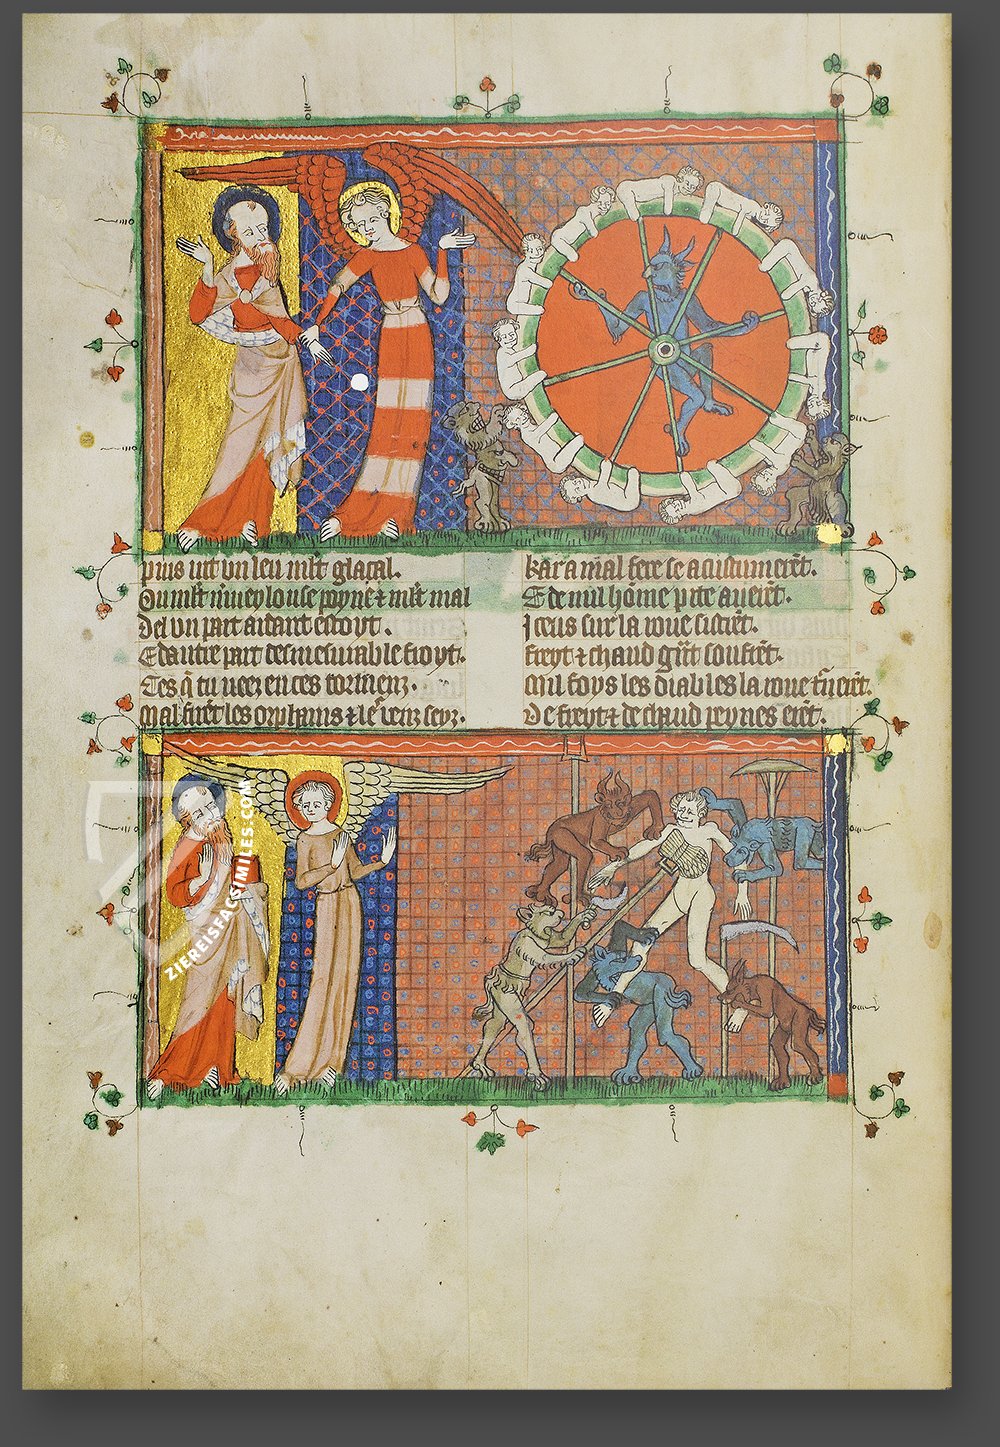 puis uit vn leu mlt glaçal.
Ou mlt mueylouse peyne & mlt mal
Del vn part ardant estoyt.
E dautre part desmesurable froyt.
Ces q̄ tu veez en ces tormenz.
Mal firēt les orphanis & le'
Kar a mal fere se acustumerēt.
E de nul home pite auerēt.
Iceus sur la roue sistrēt.
Freyt & chaud gñt soufrēt.
Mil foys les diables la roue t̄nerēt.
De freyt & de chaud peynes erēt.
ZIEREISFACSIMILES.COM